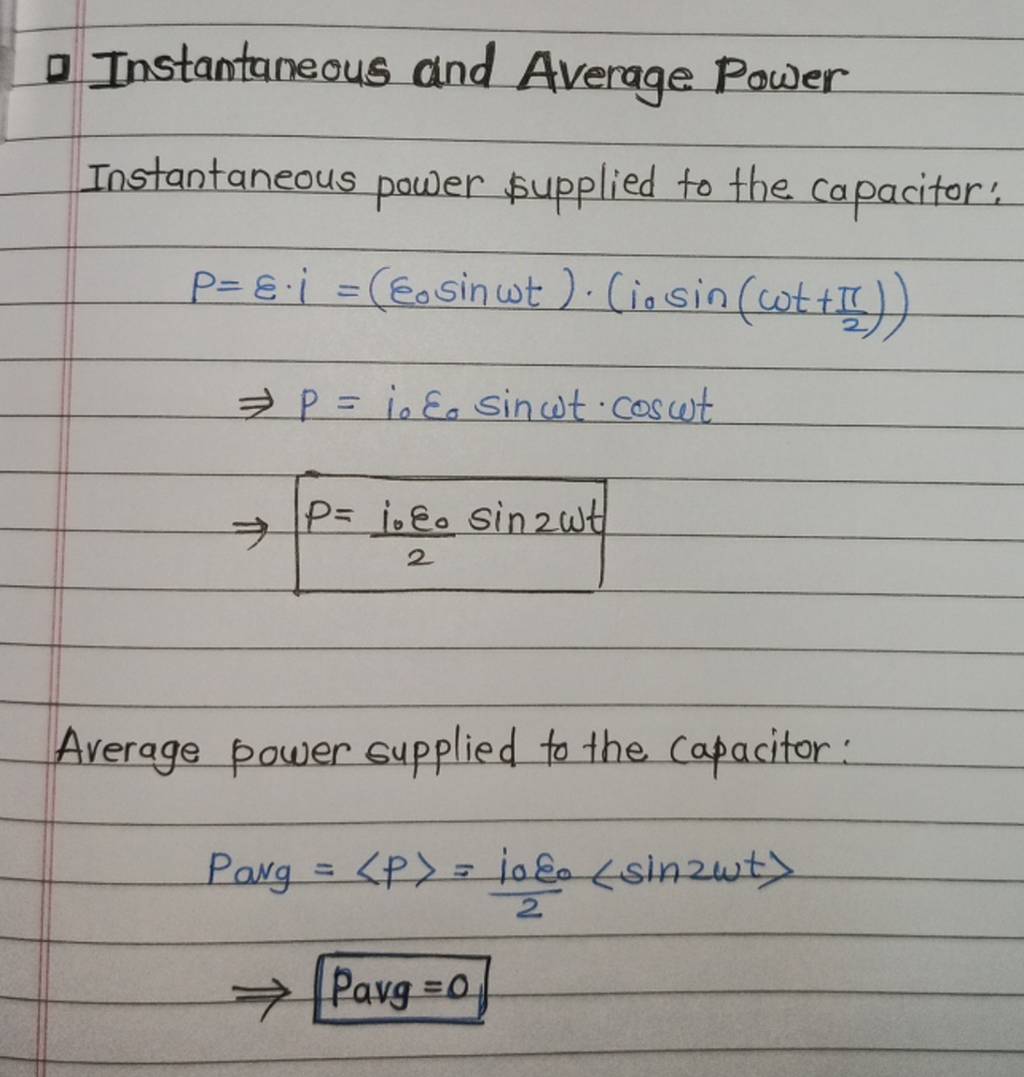 Instantaneous and Average Power
Instantaneous power supplied to the capacitor:
P = ε·i = (ε₀ sin ωt)·(i₀ sin(ωt + π/2))
⇒ P = i₀ε₀ sin ωt · cos ωt
⇒ P = i₀ε₀/2 sin 2ωt
Average power supplied to the capacitor:
Pavg = <P> = i₀ε₀/2 <sin 2ωt>
⇒ Pavg = 0